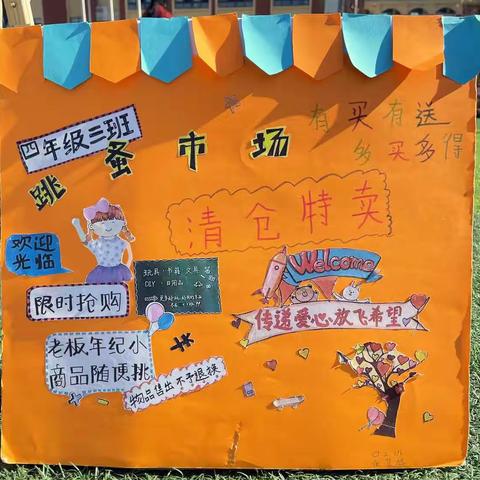 四年级三班
跳蚤市场
有买有送
多买多得
清仓特卖
欢迎
光临
玩具·书籍·文具等
DIY·日用品
Welcome
限时抢购
传递爱心·放飞希望
老板年纪小
商品随便挑
物品售出不予退换